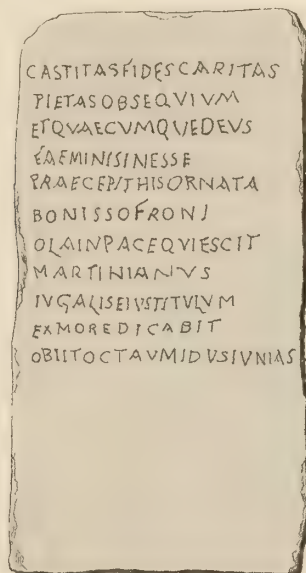 CASTITASFIDESCARITAS
PIETASOBSEQVIVM
ETQVAECVMQVEDEVS
FAEMINISINESSE
PRAECEPITHISORNATA
BONISSOFRONI
OLAINPACEQVIESCIT
MARTINIANVS
IVGALISEIVSTITVLVM
EXMOREDICABIT
OBIITOCTAVMIDVSIVNIAS